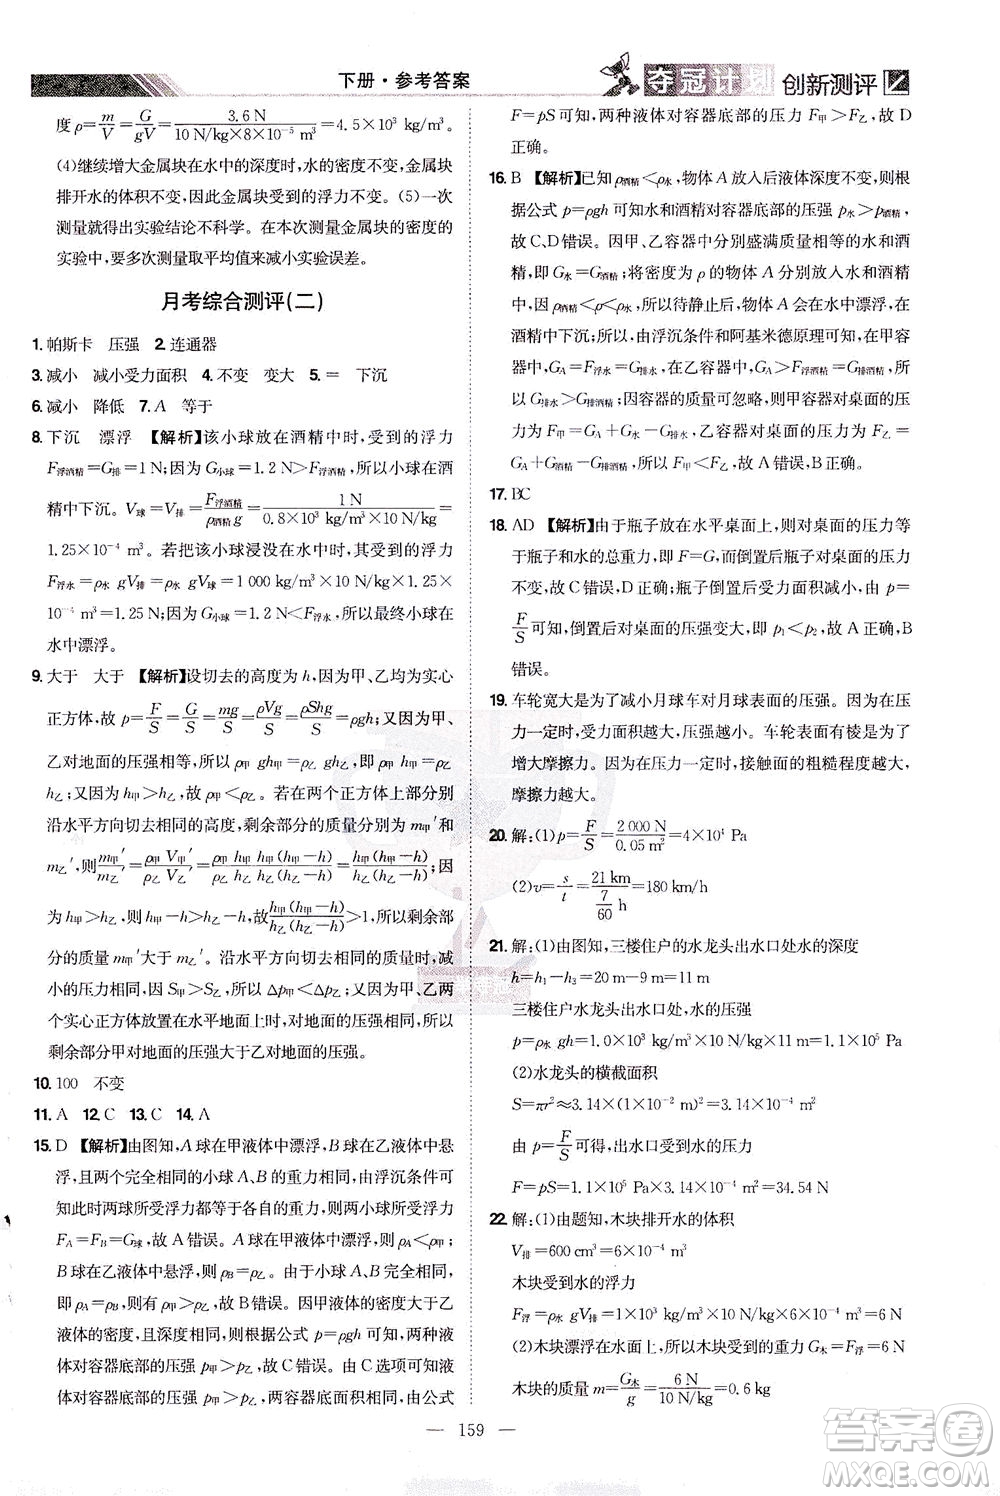 下册·参考答案
夺冠计划 创新测评
度ρ=m/V=G/gV=3.6 N/(10 N/kg×8×10⁻⁵ m³)=4.5×10³ kg/m³。
(4)继续增大金属块在水中的深度时,水的密度不变,金属块
排开水的体积不变,因此金属块受到的浮力不变。(5)一次
测量就得出实验结论不科学。在本次测量金属块的密度的
实验中,要多次测量取平均值来减小实验误差。
月考综合测评(二)
1. 帕斯卡 压强 2. 连通器
3. 减小 减小受力面积 4. 不变 变大 5. = 下沉
6. 减小 降低 7. A 等于
8. 下沉 漂浮 【解析】该小球放在酒精中时,受到的浮力
F浮酒精=G排=1 N;因为G小球=1.2 N>F浮酒精,所以小球在酒
精中下沉。V球=V排=F浮酒精/ρ酒精g=1 N/(0.8×10³ kg/m³×10 N/kg)=
1.25×10⁻⁴ m³。若把该小球浸在水中时,受到的浮力
F浮水=ρ水 gV排=ρ水 gV球=1 000 kg/m³×10 N/kg×1.25×
10⁻⁴ m³=1.25 N;因为G小球=1.2 N<F浮水,所以最终小球在
水中漂浮。
9. 大于 大于 【解析】设切去的高度为h,因甲、乙均为实心
正方体,故p=F/S=G/S=mg/S=ρVg/S=ρShg/S=ρgh;又因为甲、
乙对地面的压强相等,所以ρ甲 gh甲=ρ乙 gh乙,即ρ甲 h甲=ρ乙
h乙;因为h甲>h乙,故ρ甲<ρ乙。若在两个正方体上部分别
沿水平方向切去相同的高度,剩余部分的质量分别为m甲′和
m乙′,则m甲′/m乙′=ρ甲 V甲′/ρ乙 V乙′=ρ甲 h甲 h甲(h甲-h)/ρ乙 h乙 h乙(h乙-h)=h甲(h甲-h)/h乙(h乙-h);因
为h甲>h乙,h甲-h>h乙-h,故h甲(h甲-h)/h乙(h乙-h)>1,所以剩余部
分的质量m甲′>m乙′。沿水平方向切去相同的高度,压力
减小,因为ρ甲<ρ乙,S甲>S乙,所以Δp甲<Δp乙;因甲、乙两
个实心正方体放置在水平地面上时,对地面的压强相同,所以
剩余部分甲对地面的压强大于乙对地面的压强。
10. 100 不变
11. A 12. C 13. C 14. A
15. D 【解析】由图知,A球在甲液体中漂浮,B球在乙液体中悬
浮,且这两个完全相同的小球A、B的重力相等,由浮沉条件可
知此时两球所受浮力都等于各自的重力,则两球所受浮力
FA=FB=G,故A错误。以A球在甲液体中漂浮,则ρA<ρ甲,
B球在乙液体中悬浮,则ρB=ρ乙。由于小球A、B完全相同,
即ρA=ρB,则有ρ甲>ρ乙,故B错误。因甲液体的密度大于乙
液体的密度,且深度相同,则根据公式p=ρgh可知,两种液
体对容器底部的压强p甲>p乙,故C错误。由C选项可知液
体对容器底部的压强p甲>p乙,两容器的底面积相同,由公式
F=pS可知,两种液体对容器底部的压力F甲>F乙,故D
正确。
16. B 【解析】已知ρ酒精<ρ水,物体A放入后液体深度不变,则根
据公式p=ρgh可知水和酒精对容器底部的压强p水>p酒精,
故C、D错误。因甲、乙容器中分别盛满体积相等的水和酒
精,即G水=G排水,G酒精=G排酒精;两容器中的物体A分别放入水与酒精
中,且G水>G酒精,所以待静止后,物体A会在水中漂浮,在酒
精中下沉;所以,由浮沉条件和阿基米德原理可知,在甲容
器中,GA=F浮水=G排水,在乙容器中,GA>F浮酒精=G排酒精,所
以G排水>G排酒精;因容器的质量可忽略,则甲容器对桌面的压
力F甲=GA+G水-G排水=G水,乙容器对桌面的压力F乙=
GA+G酒精-G排酒精,所以F甲<F乙,故A错误,B正确。
17. BC
18. AD 【解析】由于瓶子放在水平桌面上,则对桌面的压力等
于瓶子和水的总重力,即F=G,而倒置后瓶子对桌面的压力
不变,故C错误,D正确;瓶子倒置后受力面积减小,由p=
F/S可知,倒置后对桌面的压强变大,即p₁<p₂,故A正确,B
错误。
19. 车轮宽大是为了减小月球车对月球表面的压强。因为在压
力一定时,受力面积越大,压强越小。车轮表面有棱是为了
增大摩擦力。因为在压力一定时,接触面的粗糙程度越大,
摩擦力越大。
20. 解:(1)p=F/S=2 000 N/0.05 m²=4×10⁴ Pa
(2)v=s/t=21 km/(7/60 h)=180 km/h
21. 解:(1)由图知,三楼住户的水龙头出水口处水的深度
h=h₁-h₃=20 m-9 m=11 m
三楼住户水龙头出水口处,水的压强
p=ρ水 gh=1.0×10³ kg/m³×10 N/kg×11 m=1.1×10⁵ Pa
(2)水龙头的横截面积
S=πr²≈3.14×(1×10⁻² m)²=3.14×10⁻⁴ m²
由p=F/S可得,出水口受到水的压力
F=pS=1.1×10⁵ Pa×3.14×10⁻⁴ m²=34.54 N
22. 解:(1)由题知,木块排开水的体积
V排=600 cm³=6×10⁻⁴ m³
木块受到水的浮力
F浮=ρ水 gV排=1×10³ kg/m³×10 N/kg×6×10⁻⁴ m³=6 N
(2)木块漂浮在水面上,所以木块受到的重力G木=F浮=6 N
木块的质量m=G木/g=6 N/(10 N/kg)=0.6 kg
— 159 —
答案圈
MXQE.COM